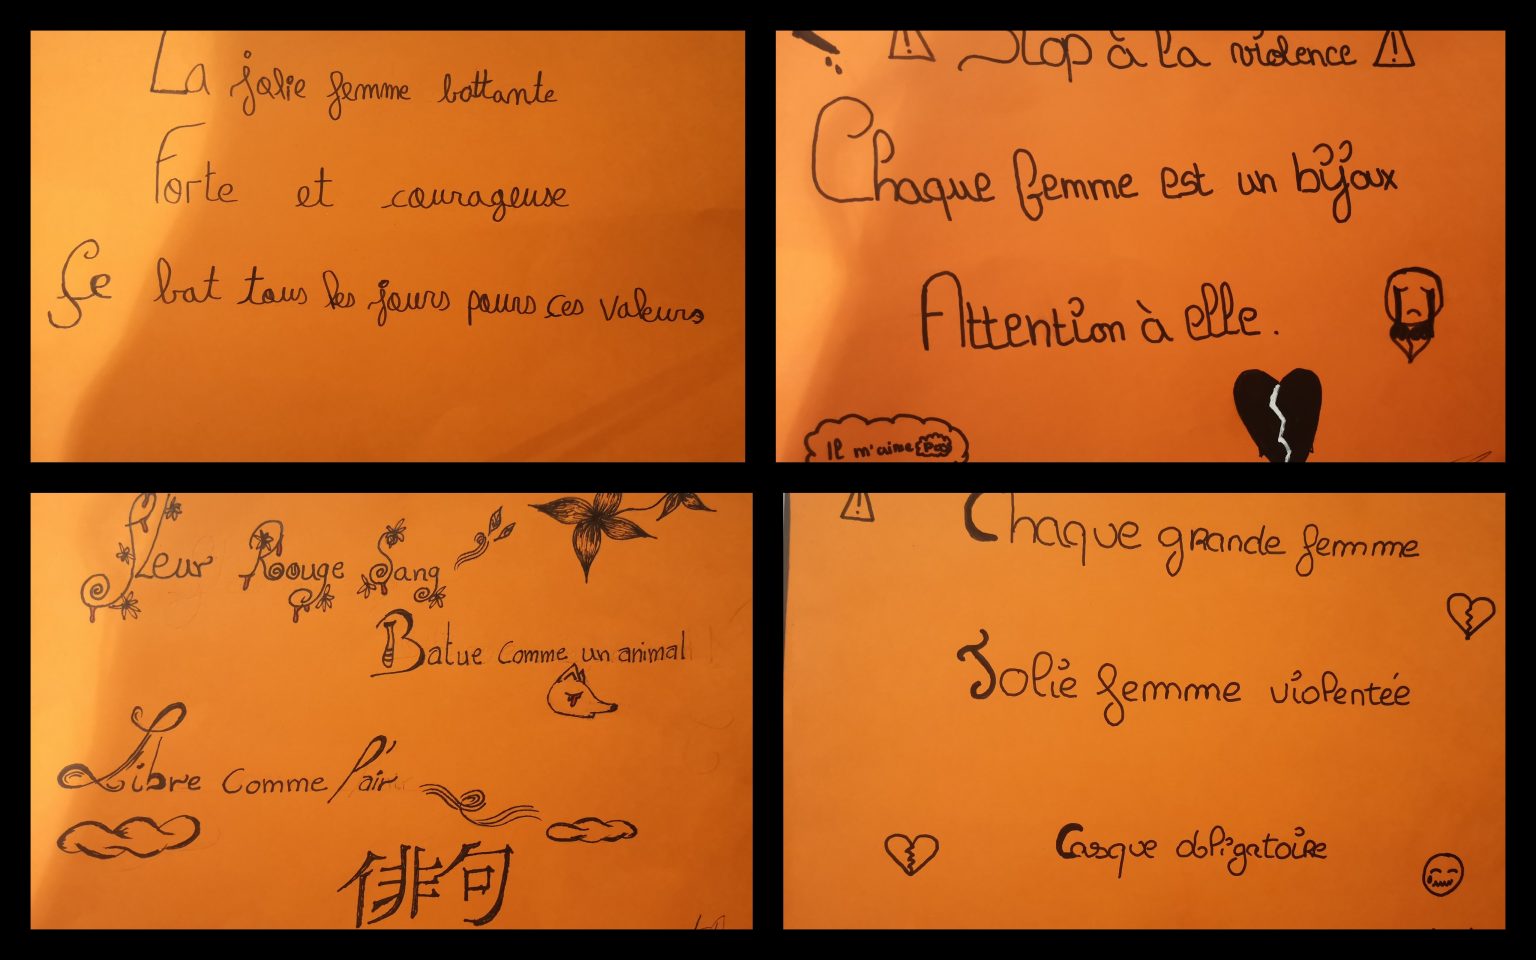 La jolie femme battante
Forte et courageuse
Se bat tous les jours pours ces valeurs
Stop à la violence
Chaque femme est un bijoux
Attention à elle.
Il m'aime Pas
Fleur Rouge Sang
Batue comme un animal
Libre comme l'air
俳句
Chaque grande femme
Jolie femme violentée
Casque obligatoire